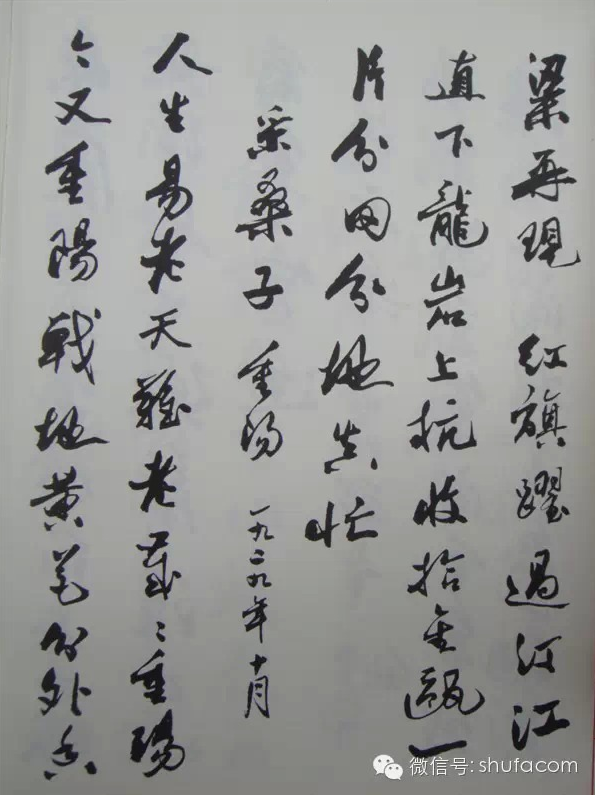 梁再現 红旗躍過汀江
直下龍岩上杭收拾金甌一
片分田分地真忙
采桑子 重陽 一九二九年十月
人生易老天難老歲〻重陽
今又重陽戰地黄花分外香
微信号: shufacom